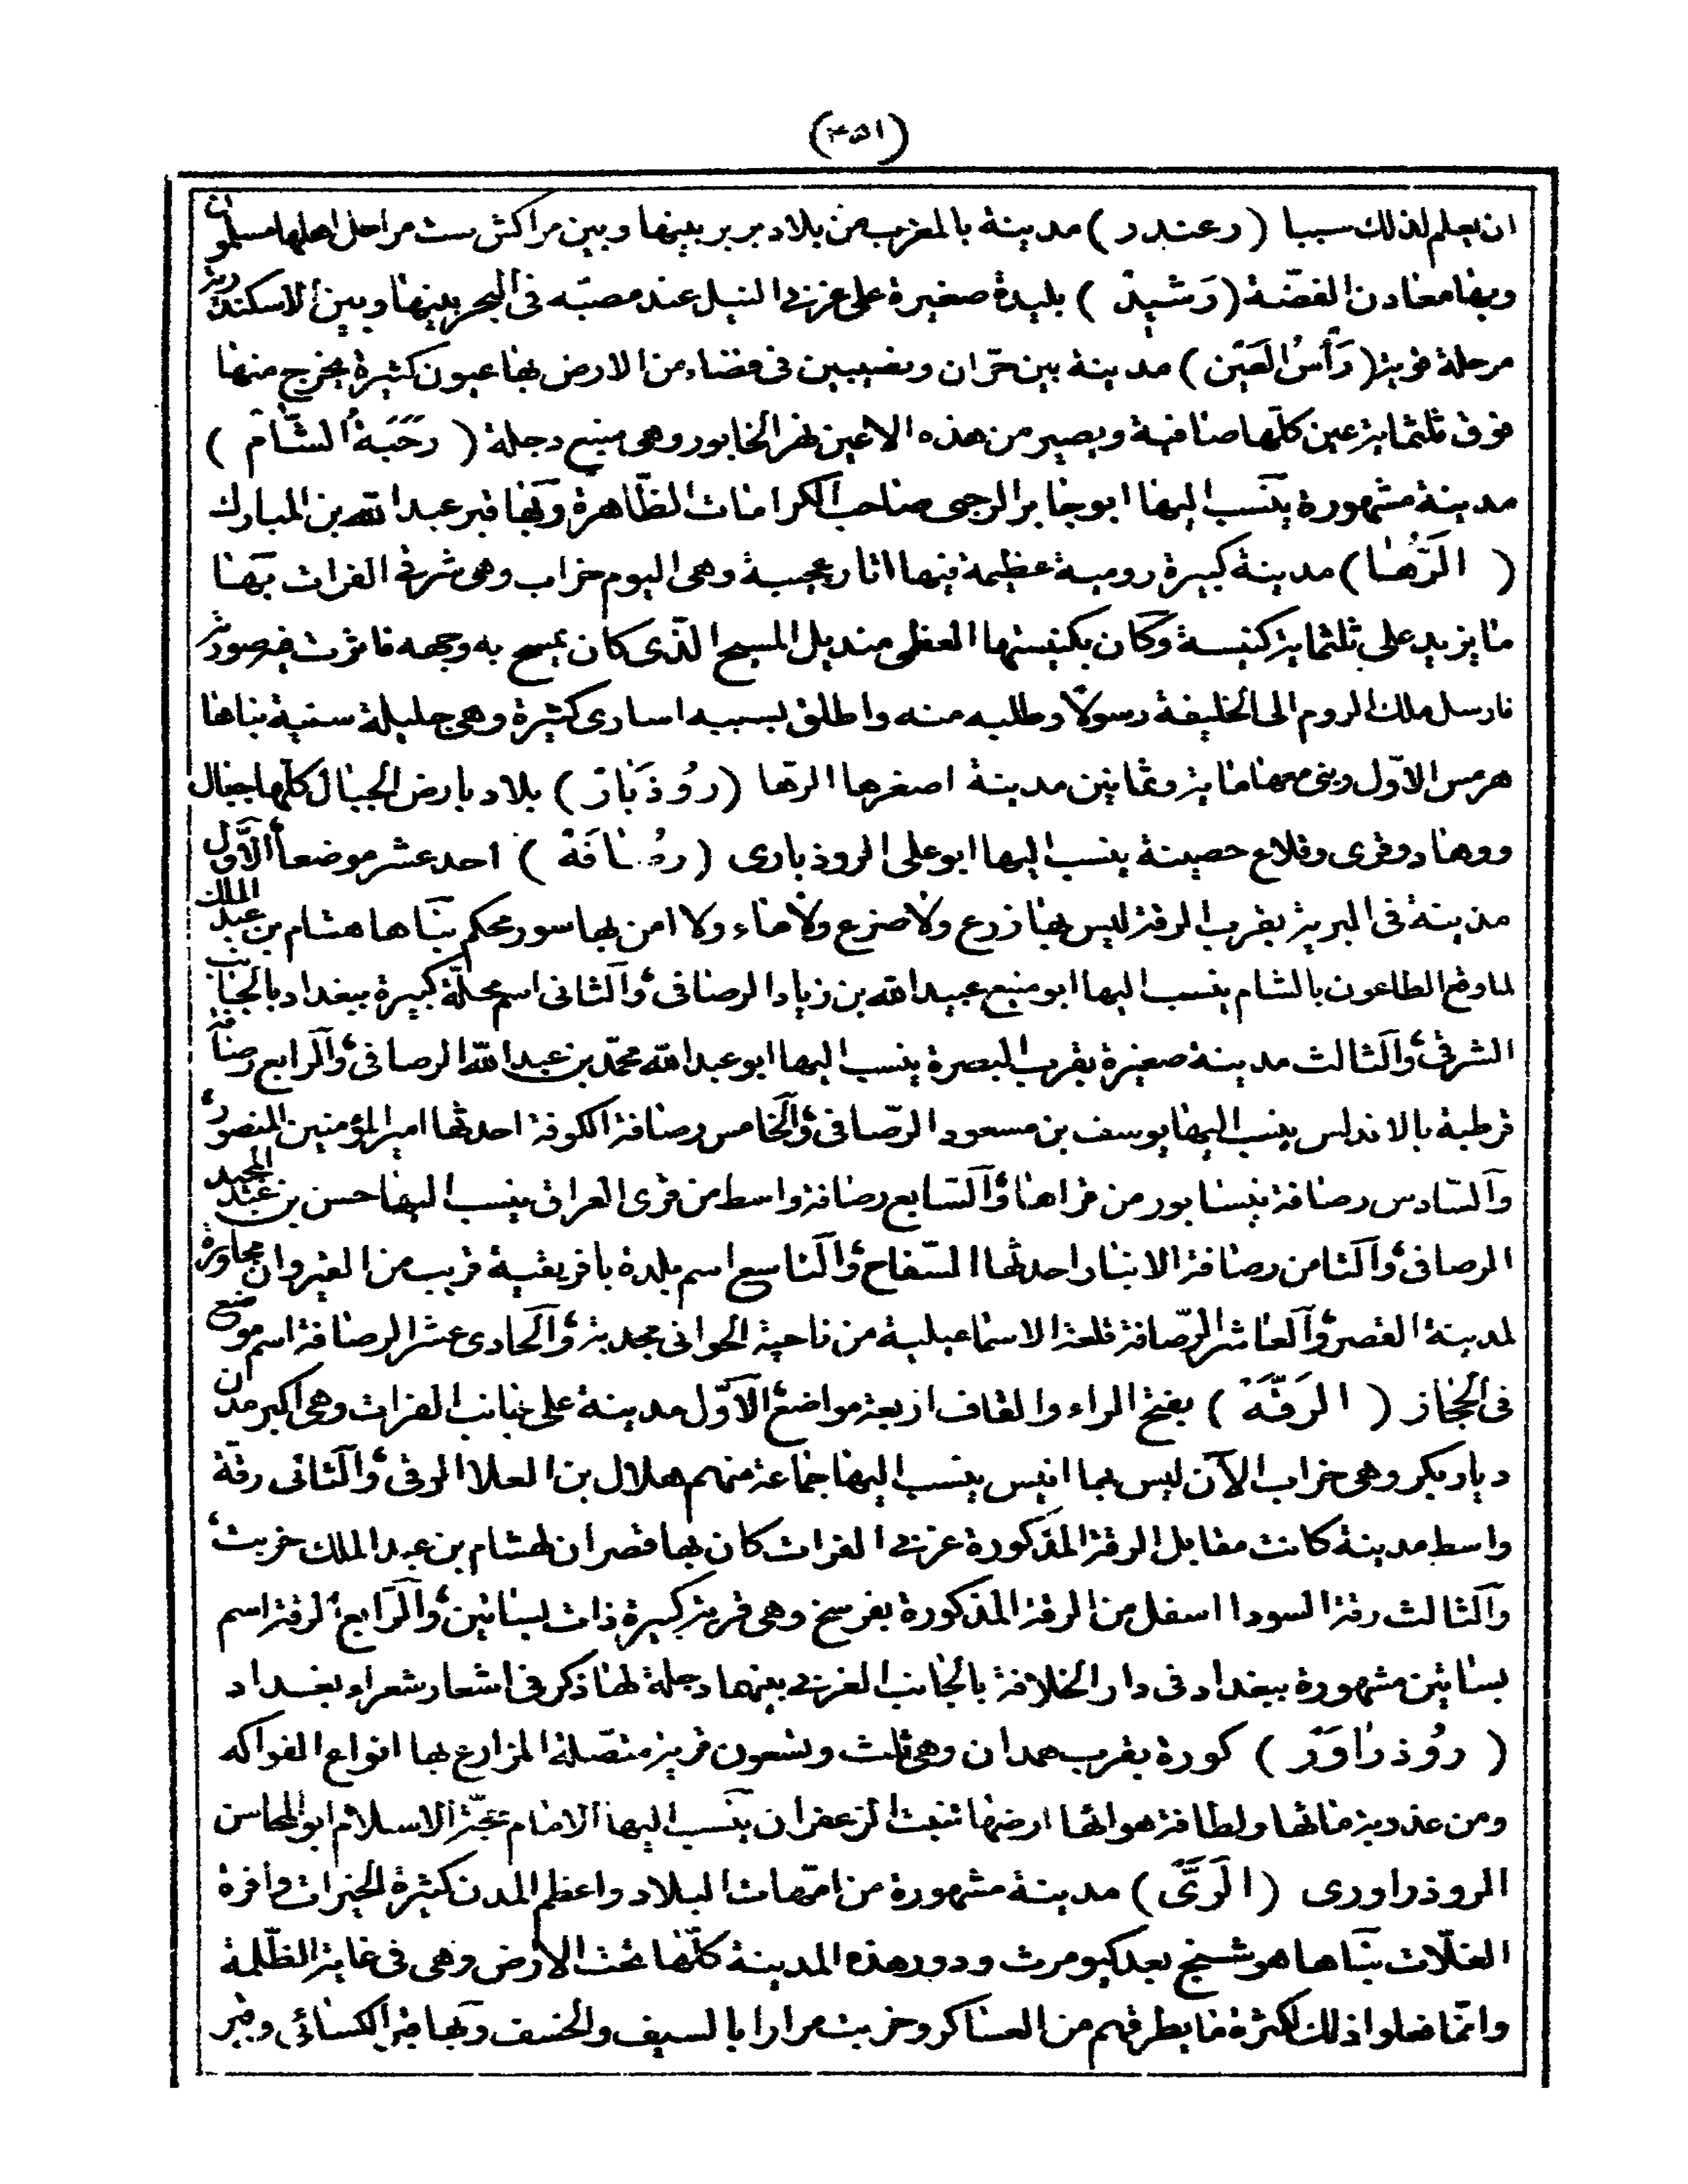 (٤٥١)
ان يعلم لذلك سببا (رعندر) مدينة بالمغرب من بلاد بربر بينها وبين مراكش ست مراحل اهلها مسلمون
وبها معادن الفضّة (رَشيد) بليدة صغيرة على غربي النيل عند مصبّه في البحر بينها وبين الاسكندرية
مرحلة قوية (رَأسُ العَين) مدينة بين حرّان ونصيبين في فضاء من الارض بها عيون كثيرة يخرج منها
فوق ثلثماية عين كلّها صافية ويصير من هذه الاعين نهر الخابور وهي منبع دجلة (رَحَبَةُ الشّام)
مدينة مشهورة ينسب اليها ابو جابر الرحبي صاحب الكرامات الظّاهرة وبها قبر عبد الله بن المبارك
(الرَّها) مدينة كبيرة رومية عظيمة فيها اثار عجيبة وهي اليوم خراب وهي شرقي الفرات بها
ما يزيد على ثلثماية كنيسة وكان بكنيستها العظمى منديل المسيح الّذي كان يمسح به وجهه فاثرت فيه صورته
فارسل ملك الروم الى الخليفة رسولا وطلبه منه واطلق بسببه اسارى كثيرة وهي جليلة سنية بناها
هرمس الاوّل وبنى معها ماية وثمانين مدينة اصغرها الرها (رُوذبَار) بلاد بارض الجبال كلّها جبال
ووهاد وقرى وقلاع حصينة ينسب اليها ابو على الروذباري (رُصافَة) احد عشر موضعاً الاَوّل
مدينة في البرية بقرب الرقة ليس بها زرع ولا ضرع ولا ماء ولا امن بها سور محكم بناها هشام بن عبد الملك
لما وقع الطاعون بالشام ينسب اليها ابو منيع عبيد الله بن زياد الرصافي وَالثاني اسم محلّة كبيرة ببغداد بالجانب
الشرقي وَالثالث مدينة صغيرة بقرب البصرة ينسب اليها ابو عبد الله محمّد بن عبد الله الرصافي وَالرابع رصافة
قرطبة بالاندلس ينسب اليها يوسف بن مسعود الرّصافي وَالخامس رصافة الكوفة احدثها امير المؤمنين المنصور
وَالسّادس رصافة نيسابور من قراها وَالسّابع رصافة واسط من قرى العراق ينسب اليها حسن بن عبد المجيد
الرصافي وَالثامن رصافة الانبار احدثها السّفاح وَالتاسع اسم بلدة بافريقية قريب من القيروان مجاورة
لمدينة القصر وَالعاشر الرّصافة قلعة الاسماعيلية من ناحية الخوابي مجدبة وَالحادي عشر الرصافة اسم موضع
في الحجاز (الرَقّة) بفتح الراء والقاف اربعة مواضع الاَوّل مدينة على جانب الفرات وهي اكبر مدن
ديار بكر وهي خراب الآن ليس بها انيس ينسب اليها جماعة منهم هلال بن العلا الرقي وَالثاني رقّة
واسط مدينة كانت مقابل الرقة المذكورة غربي الفرات كان بها قصران لهشام بن عبد الملك خربت
وَالثالث رقة السودا اسفل من الرقة المذكورة بفرسخ وهي قرية كبيرة ذات بساتين وَالرّابع الرقة اسم
بساتين مشهورة ببغداد في دار الخلافة بالجانب الغربي بينهما دجلة لها ذكر في اشعار شعراء بغداد
(رُوذرَاوَر) كورة بقرب همدان وهي ثلث وتسعون قرية متّصلة المزارع بها انواع الفواكه
ومن عذوبة مائها ولطافة هوائها ارضها تنبت الزعفران ينسب اليها الامام حجّة الاسلام ابو المحاسن
الروذراوري (الرَّيّ) مدينة مشهورة من امّهات البلاد واعظم المدن كثيرة الخيرات وافرة
الغلّات بناها هوشنج بعد كيومرث ودور هذه المدينة كلّها تحت الارض وهي في غاية الظّلمة
وانّما فعلوا ذلك لكثرة ما يطرقهم من العساكر وخربت مرارا بالسيف والخسف وبها قبر الكسائي وقبر